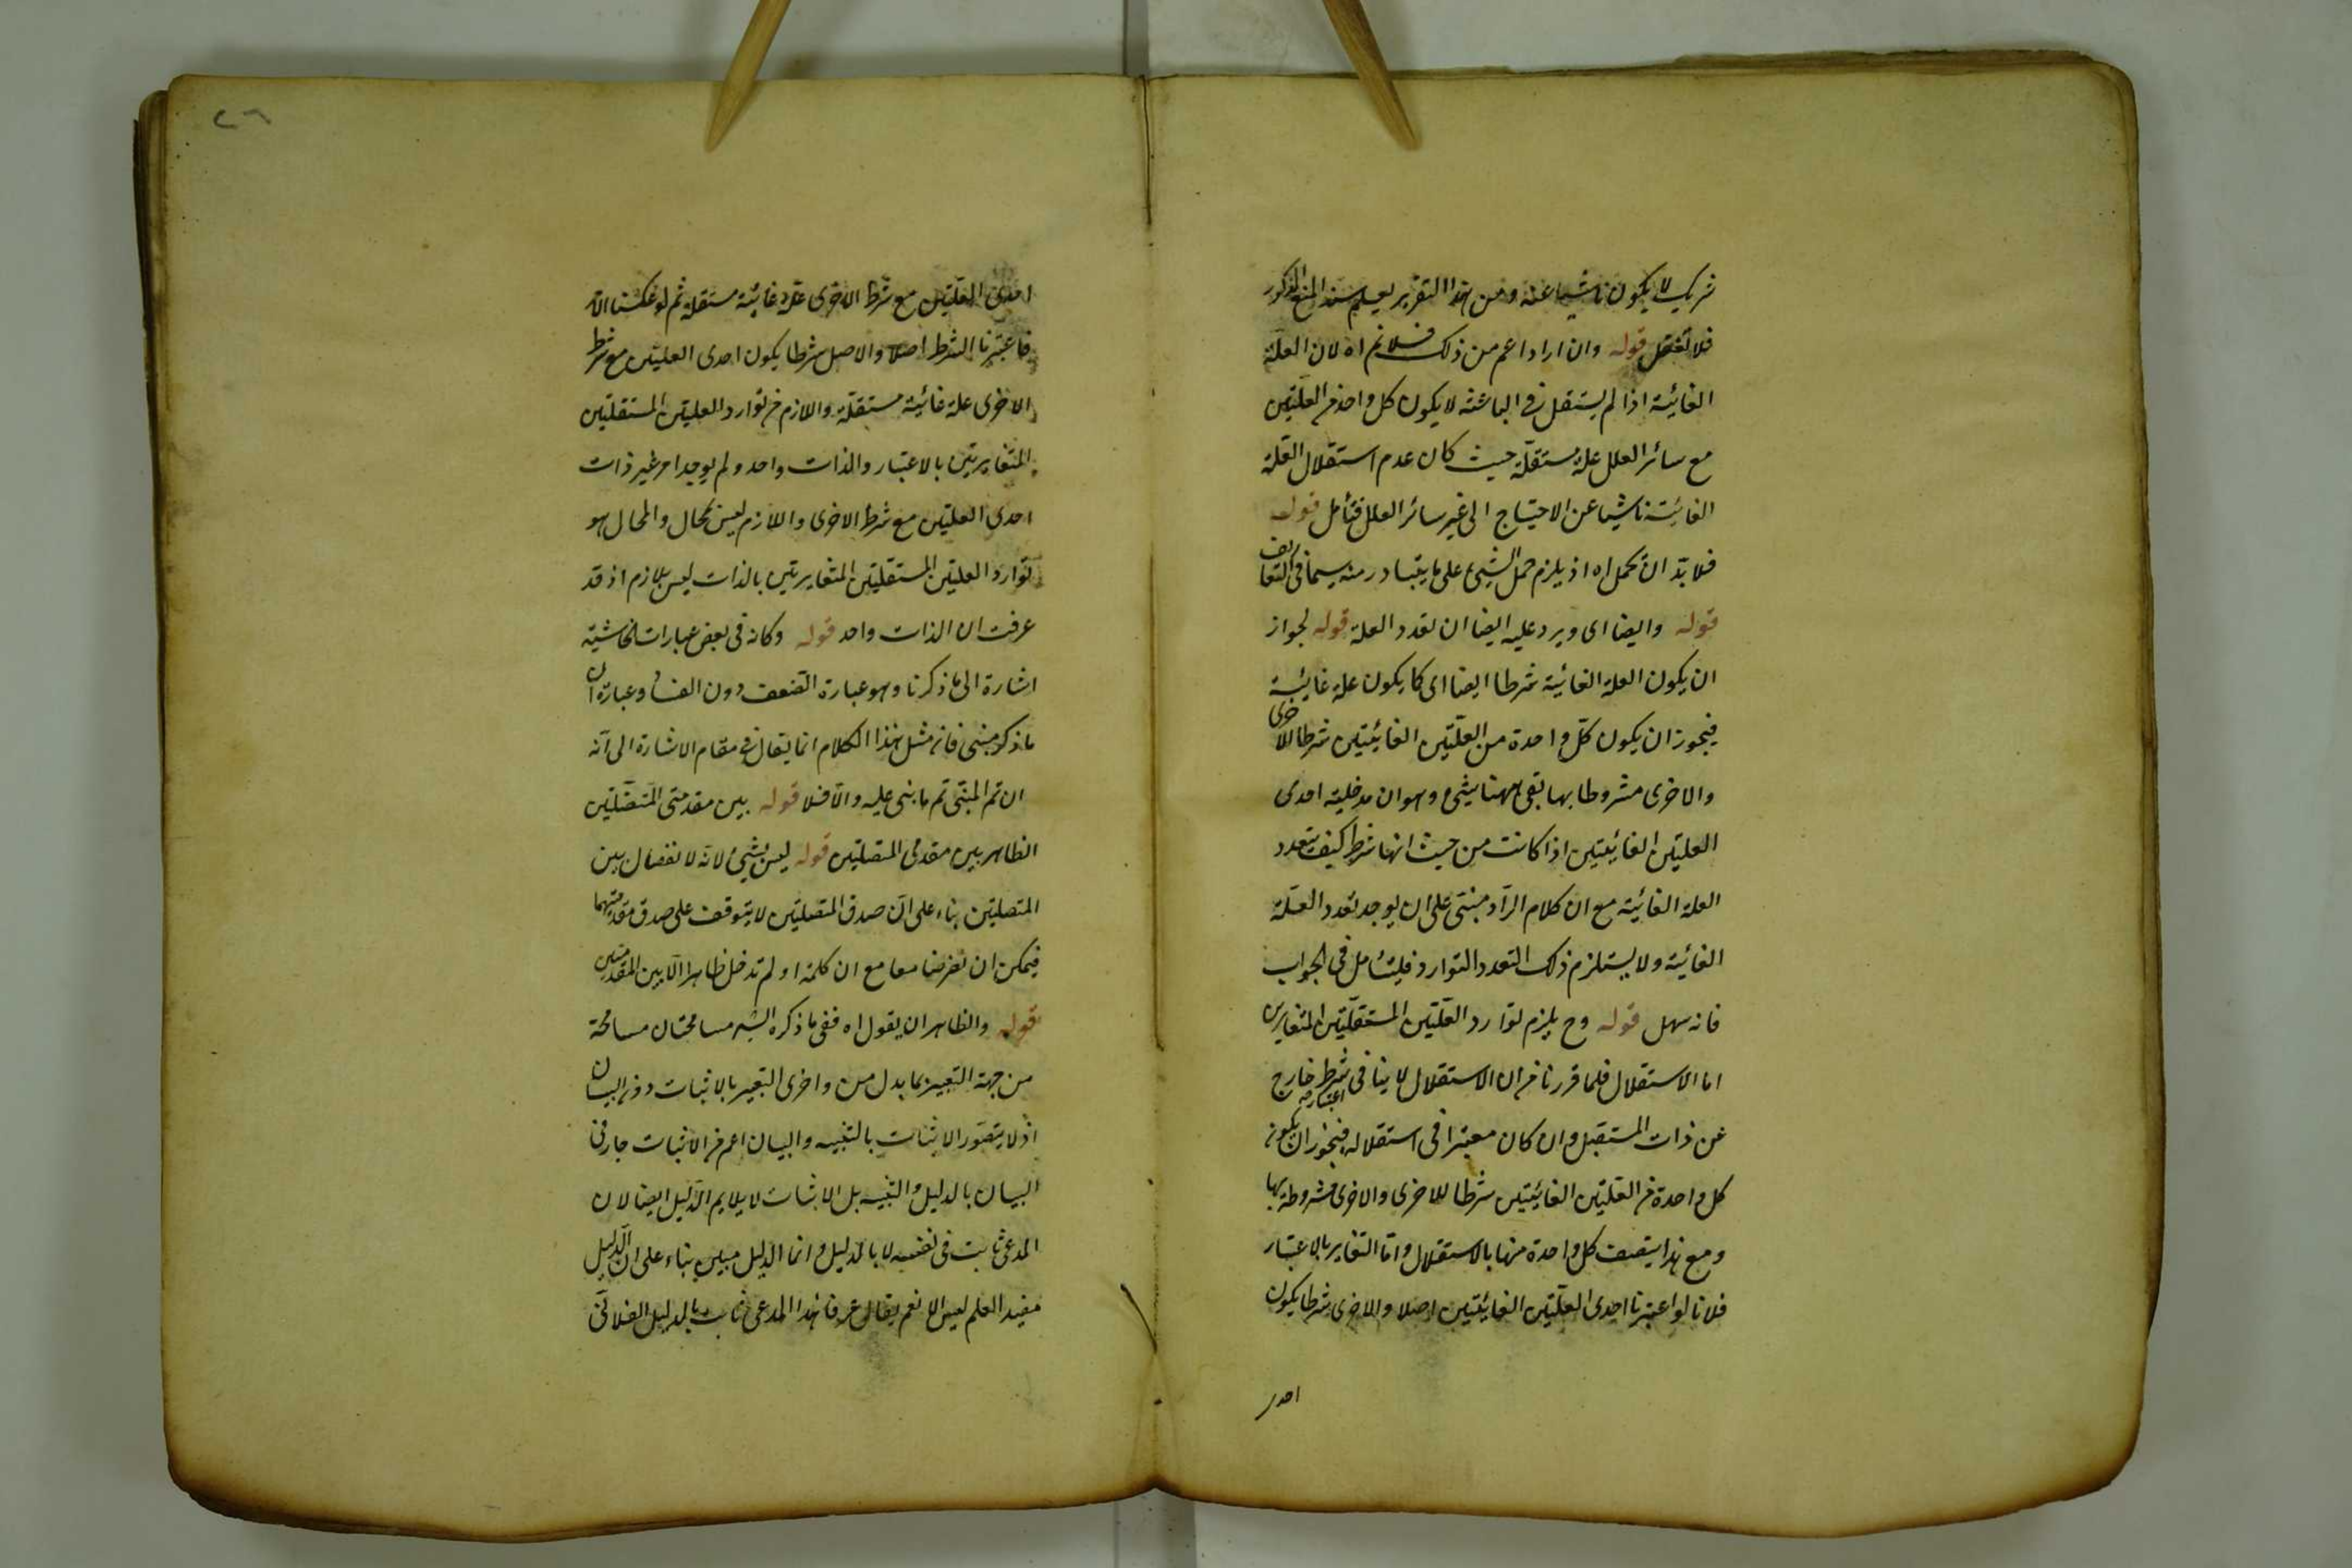 شريك لا يكون ناشيا عنه ومن هذا التقرير يعلم سند المنع المذكور
فلا تغفل قوله وان اراد اعم من ذلك فلا نم اه لان العلة
الغائية اذا لم يستقل في الباعثية لا يكون كل واحد من العلتين
مع سائر العلل علة مستقلة حيث كان عدم استقلال العلة
الغائية ناشيا عن الاحتياج الى غير سائر العلل فتأمل قوله
فلا بد ان تحمل اه اذ يلزم حمل الشيئ على ما يتبادر منه سيما في التعاريف
قوله وايضا اى ويرد عليه ايضا ان تعدد العلة قوله لجواز
ان يكون العلة الغائية شرطا ايضا اى كما يكون علة غائية
فيجوز ان يكون كل واحدة من العلتين الغائيتين شرطا للاخرى
والاخرى مشروطا بها بقى ههنا شيئ وهو ان مدخلية احدى
العلتين الغائيتين اذا كانت من حيث انها شرط كيف يتعدد
العلة الغائية مع ان كلام الراد مبنى على ان يوجد تعدد العلة
الغائية ولا يستلزم ذلك التعدد التوارد فليتأمل في الجواب
فانه سهل قوله وح يلزم توارد العلتين المستقلتين المتغايرتين
اما الاستقلال فلما قررنا من ان الاستقلال لا ينافى شرط خارج
عن ذات المستقل وان كان معتبرا في استقلاله فيجوز ان يكون
كل واحدة من العلتين الغائيتين شرطا للاخرى والاخرى مشروطة بها
ومع هذا يتصف كل واحدة منها بالاستقلال واما التغاير بالاعتبار
فلانا لو اعتبرنا احدى العلتين الغائيتين اصلا والاخرى شرطا يكون
احدى
٢٦
احدى العلتين مع شرط الاخرى علة غائية مستقلة ثم لو عكسنا
فاعتبرنا الشرط اصلا والاصل شرطا يكون احدى العلتين مع شرط
الاخرى علة غائية مستقلة واللازم من توارد العلتين المستقلتين
المتغايرتين بالاعتبار والذات واحد ولم يوجد امر غير ذات
احدى العلتين مع شرط الاخرى واللازم ليس بمحال والمحال هو
توارد العلتين المستقلتين المتغايرتين بالذات ليس بلازم اذ قد
عرفت ان الذات واحد قوله وكانه في بعض عبارات الحاشية
اشارة الى ما ذكرنا وهو عبارة الضعف دون الفساد وعبارة ان
ما ذكر مبنى فان مثل هذا الكلام انما يقال في مقام الاشارة الى انه
ان تم المبنى تم ما بنى عليه والا فلا قوله بين مقدمتى المتصلتين
الظاهر بين مقدمى المتصلتين قوله ليس بشيئ لانه لا انفصال بين
المتصلتين بناء على ان صدق المتصلتين لا يتوقف على صدق مقدمتيهما
فيمكن ان تفرضا معا مع ان كلمة او لم تدخل ظاهرا الا بين المقدمتين
قوله والظاهر ان يقول اه ففى ما ذكره الش مسامحتان مسامحة
من جهة التعبير بما بدل من واخرى التعبير بالاثبات دون البيان
اذ لا يتصور الاثبات بالتنبيه والبيان اعم من الاثبات جار في
البيان بالدليل والتنبيه بل الاثبات لا يلايم الدليل ايضا لان
المدعى ثابت في نفسه لا بالدليل وانما الدليل مبين بناء على ان الدليل
مفيد العلم ليس الا نعم يقال عرفا هذا المدعى ثابت بالدليل الفلانى